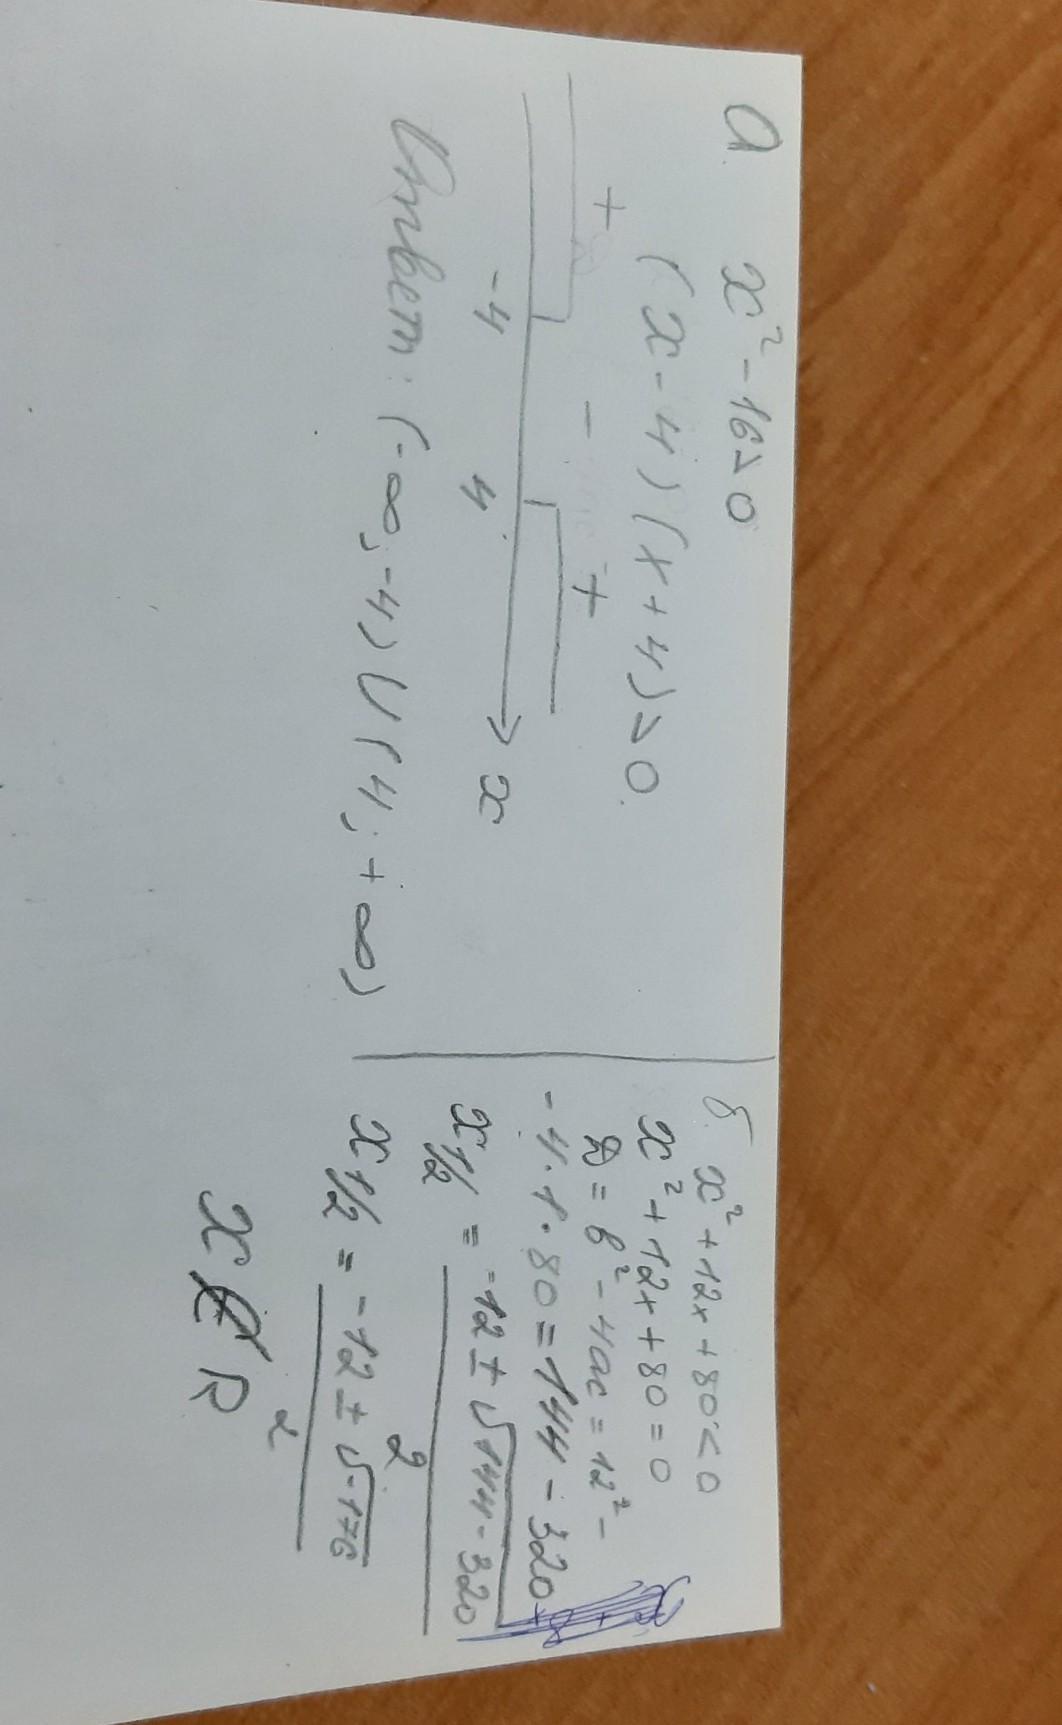 а x² - 16 > 0
(x - 4) (x + 4) > 0.
+ - +
-4 4 x
Ответ: (-∞; -4) U (4; +∞)
б. x² + 12x + 80 < 0
x² + 12x + 80 = 0
D = b² - 4ac = 12² -
- 4 · 1 · 80 = 144 - 320
x1/2 = -12 ± √144 - 320
2
x1/2 = -12 ± √-176
2
x ∉ R